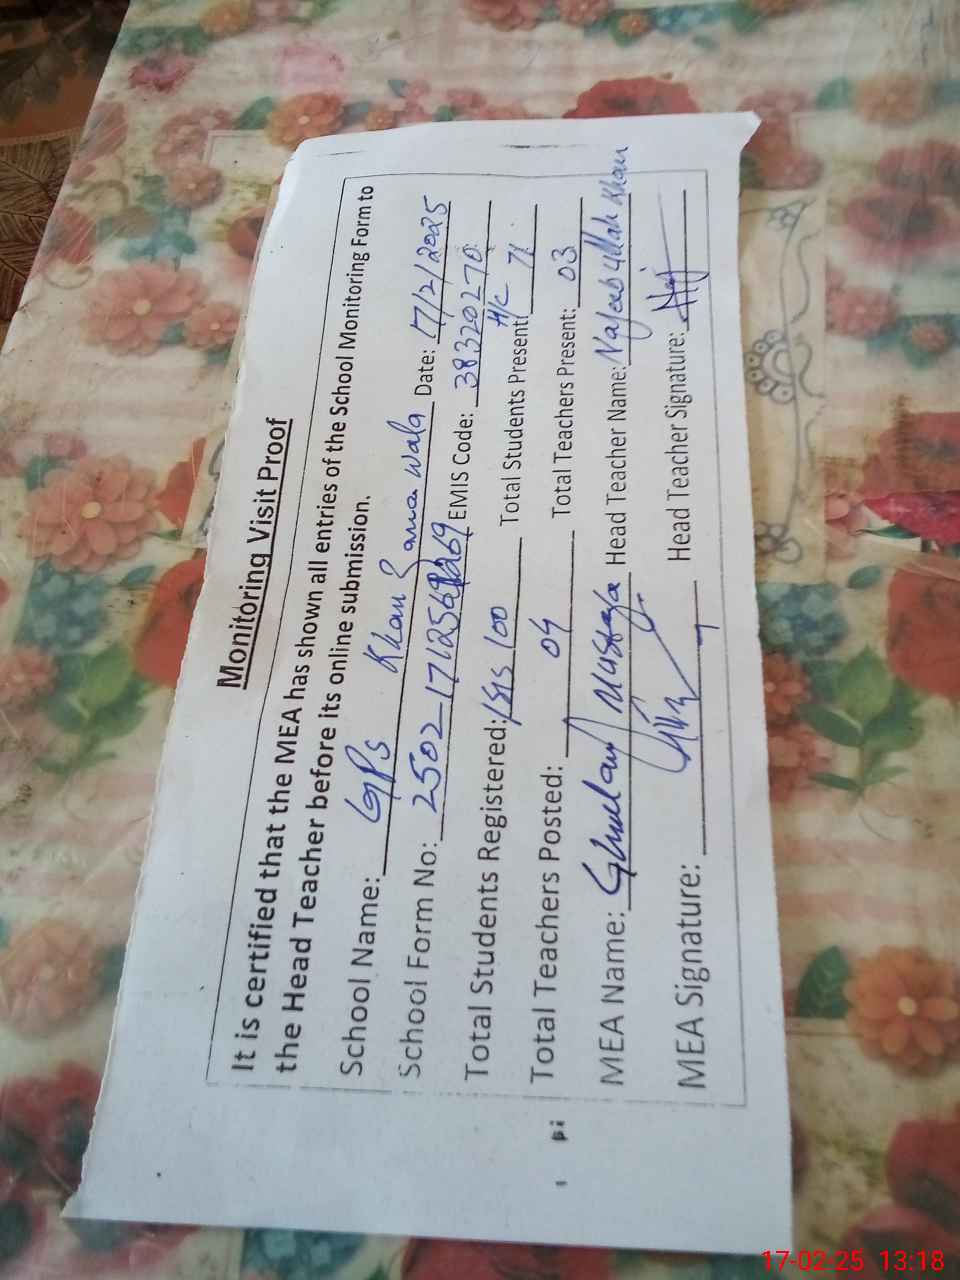 Monitoring Visit Proof
It is certified that the MEA has shown all entries of the School Monitoring Form to
the Head Teacher before its online submission.
School Name: GPS Khan Zama Wala Date: 17/2/2025
School Form No: 2502-1712569269 EMIS Code: 38320270
Total Students Registered: 100 Total Students Present: H/C 71
Total Teachers Posted: 04 Total Teachers Present: 03
MEA Name: Ghulam Mustafa Head Teacher Name: Najeeb Ullah Khan
MEA Signature: Head Teacher Signature:
17-02-25 13:18